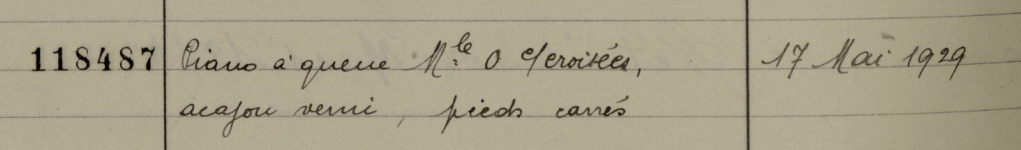 118487 Piano à queue Mle 0 c/croisées, 17 Mai 1929
acajou verni, pieds carrés